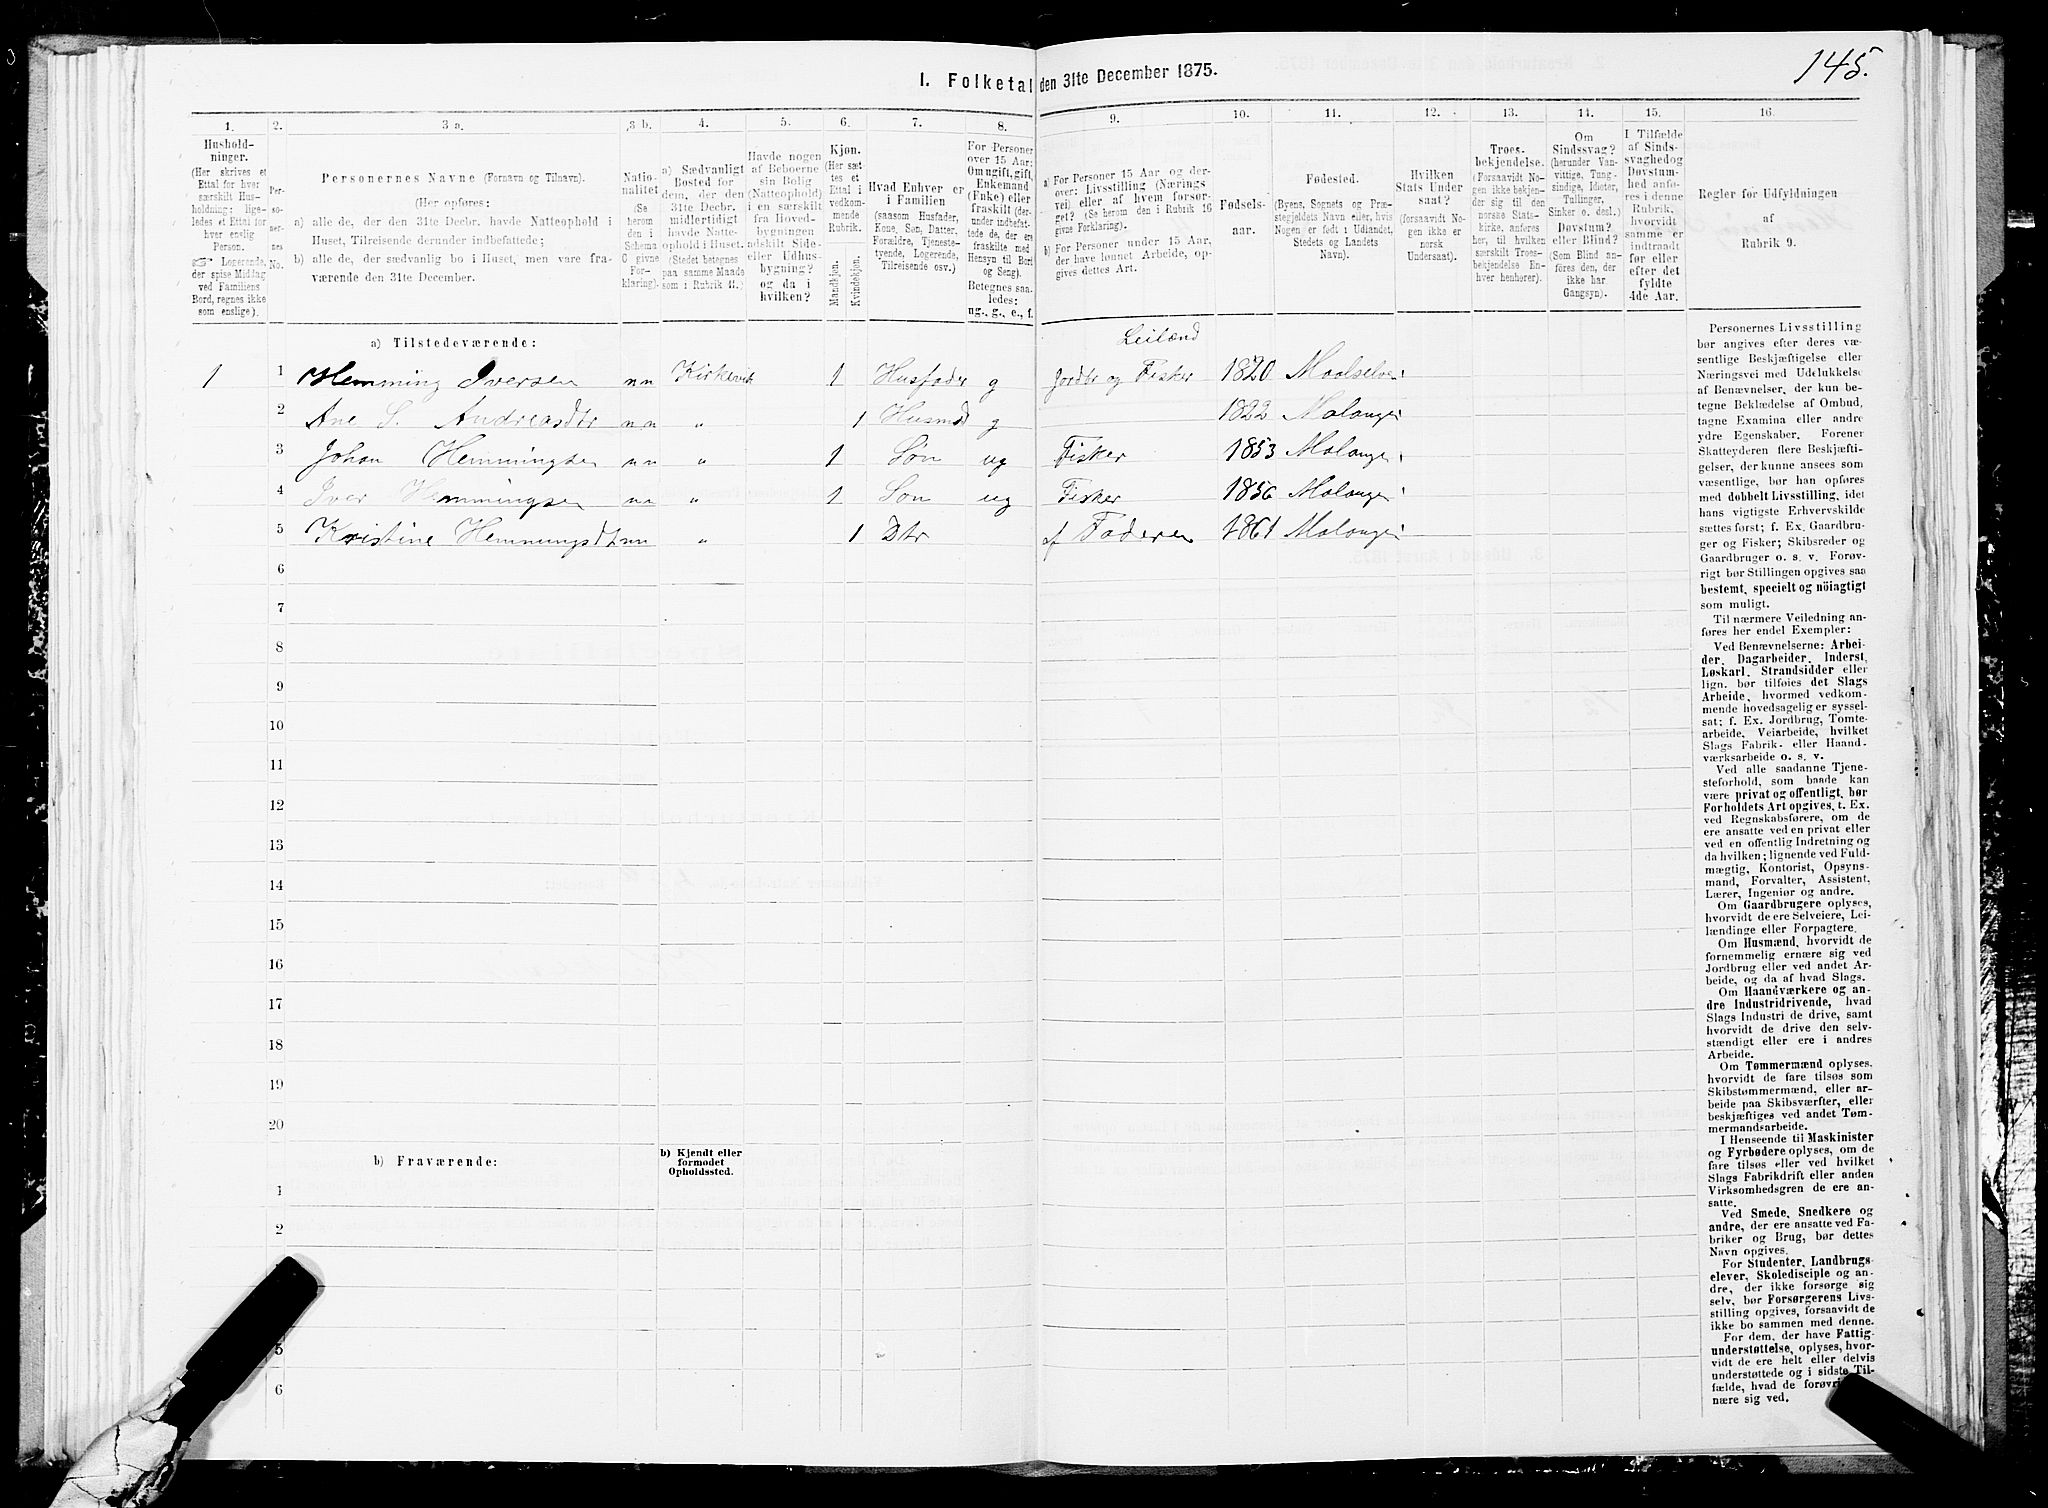 145.
I. Folketal den 31te December 1875.
1. 2. 3 a. 3 b. 4. 5. 6. 7. 8. 9. 10. 11. 12. 13. 14. 15. 16.
Hushold-
ninger.
(Her skrives et
Ettal for hver
særskilt Hus-
holdning; lige-
ledes et Ettal for
hver enslig
Person.
☞ Logerende,
der spise Middag
ved Familiens
Bord, regnes ikke
som enslige).
Per-
so-
ner-
nes
No.
Personernes Navne (Fornavn og Tilnavn).
(Her opføres:
a) alle de, der den 31te Decbr. havde Natteophold i
Huset, Tilreisende derunder indbefattede;
b) alle de, der sædvanlig bo i Huset, men vare fra-
værende den 31te December.
Natio-
nalitet
(Se
herom
den i
Schema
C givne
For-
klaring).
a) Sædvanligt
Bosted for
dem, der den
31te Decbr.
midlertidigt
havde Natte-
ophold i Huset.
(Stedet betegnes
paa samme Maade
som i Rubrik 11.)
Havde nogen
af Beboerne
sin Bolig
(Natteophold)
i en særskilt
fra Hoved-
bygningen
adskilt Side-
eller Udhus-
bygning?
og da i
hvilken?
Kjøn.
(Her sæt-
tes et
Ettal i
vedkom-
mende
Rubrik.
Mandkjøn.
Kvindekjøn.
Hvad Enhver er
i Familien
(saasom Husfader,
Kone, Søn, Datter,
Forældre, Tjeneste-
tyende, Logerende,
Tilreisende osv.)
For Personer
over 15 Aar:
Om ugift, gift,
Enkemand
(Enke) eller
fraskilt (der-
under indbefat-
tede de, der ere
fraskilte med
Hensyn til Bord
og Seng).
Betegnes saa-
ledes:
ug., g., e., f.
a) For Personer 15 Aar og der-
over: Livsstilling (Nærings
vei) eller af hvem forsør-
get? (Se herom den i Rubrik 16
givne Forklaring).
b) For Personer under 15 Aar,
der have lønnet Arbeide, op-
gives dettes Art.
Fødsels-
aar.
Fødested.
(Byens, Sognets og Præ-
stegjeldets Navn eller, hvis
Nogen er født i Udlandet,
Stedets og Landets
Navn).
Hvilken
Stats Under
saat?
(forsaavidt No-
gen ikke er
norsk
Undersaat).
Troes-
bekjendelse.
(Forsaavidt No-
gen ikke bekjen-
der sig til den
norske Stats-
kirken, anføres
her, til hvilken
særskilt Troes-
bekjendelse En-
hver henhører).
Om
Sindssvag?
(herunder Van-
vittige, Tung-
sindige, Idioter,
Tullinger,
Sinker o. desl.)
Døvstum?
eller Blind?
(Som Blind an-
føres den, der
ikke har
Gangsyn).
I Tilfælde
af Sinds-
svaghed og
Døvstum-
hed, anfø-
res i denne
Rubrik,
hvorvidt
samme er
indtraadt
før eller
efter det
fyldte
4de Aar.
Regler for Udfyldningen
af
Rubrik 9.
a) Tilstedeværende:
Leilænd
1 1 Hemming Iversen nn Kirkevik 1 Husfader g Jordbr og Fisker 1820 Maalselven
2 Ane S. Andreasdtr nn " 1 Husmd g 1822 Malangen
3 Johan Hemmingsen nn " 1 Søn ug Fisker 1853 Malangen
4 Iver Hemmingsen nn " 1 Søn ug Fisker 1856 Malangen
5 Kristine Hemmingsdtr nn " 1 Dtr af Faderen 1861 Malangen
6
7
8
9
10
11
12
13
14
15
16
17
18
19
20
b) Fraværende:
b) Kjendt eller
formodet
Opholdssted.
1
2
5
6
Personernes Livsstilling
bør angives efter deres væ-
sentlige Beskjæftigelse eller
Næringsvei med Udelukkelse
af Benævnelser, der kun be-
tegne Beklædelse af Ombud,
tagne Examina eller andre
ydre Egenskaber. Forener
Skatteyderen flere Beskjæfti-
gelser, der kunne ansees som
væsentlige, bør han opføres
med dobbelt Livsstilling, idet
hans vigtigste Erhvervskilde
sættes først; f. Ex. Gaardbru-
ger og Fisker; Skibsreder og
Gaardbruger o. s. v. Forøv-
rigt bør Stillingen opgives saa
bestemt, specielt og nöiagtigt
som muligt.
Til nærmere Veiledning an-
føres her endel Exempler:
Ved Benævnelserne: Arbei-
der, Dagarbeider, Inderst,
Løskarl, Strandsidder eller
lign. bør tilføies det Slags
Arbeide, hvormed vedkom-
mende hovedsagelig er syssel-
sat; f. Ex. Jordbrug, Tomte-
arbeide, Veiarbeide, hvilket
Slags Fabrik- eller Haand-
værksarbeide o. s. v.
Ved alle saadanne Tjene-
steforhold, som baade kan
være privat og offentligt, bør
Forholdets Art opgives, t. Ex.
ved Regnskabsførere, om de
ere ansatte ved en privat eller
ved en offentlig Indretning og
da hvilken; lignende ved Fuld-
mægtig, Kontorist, Opsyns-
mand, Forvalter, Assistent,
Lærer, Ingeniør og andre.
Om Gaardbrugere oplyses,
hvorvidt de ere Selveiere, Lei-
lændinge eller Forpagtere.
Om Husmænd, hvorvidt de
fornemmelig ernære sig ved
Jordbrug eller ved andet Ar-
beide, og da af hvad Slags.
Om Haandværkere og an-
dre Industridrivende, hvad
Slags Industri de drive, samt
hvorvidt de drive den selv-
stændigt eller ere i andres
Arbeide.
Om Tømmermænd oplyses,
hvorvidt de fare tilsøs som
Skibstømmermænd, eller ar-
beide paa Skibsværfter, eller
beskjæftiges ved andet Tøm-
mermandsarbeide.
I Henseende til Maskinister
og Fyrbødere oplyses, om de
fare tilsøs eller ved hvilket
Slags Fabrikdrift eller anden
Virksomhedsgren de ere an-
satte.
Ved Smede, Snedkere og
andre, der ere ansatte ved Fa-
briker og Brug, bør dettes
Navn opgives.
For Studenter, Landbrugs-
elever, Skoledisciple og an-
dre, der ikke forsørge sig
selv, bør Forsørgerens Livs-
stilling opgives, forsaavidt de
ikke bo sammen med denne.
For dem, der have Fattig-
understøttelse, oplyses, hvor-
vidt de ere helt eller delvis
understøttede og i sidste Til-
fælde, hvad de
nære sig ved.